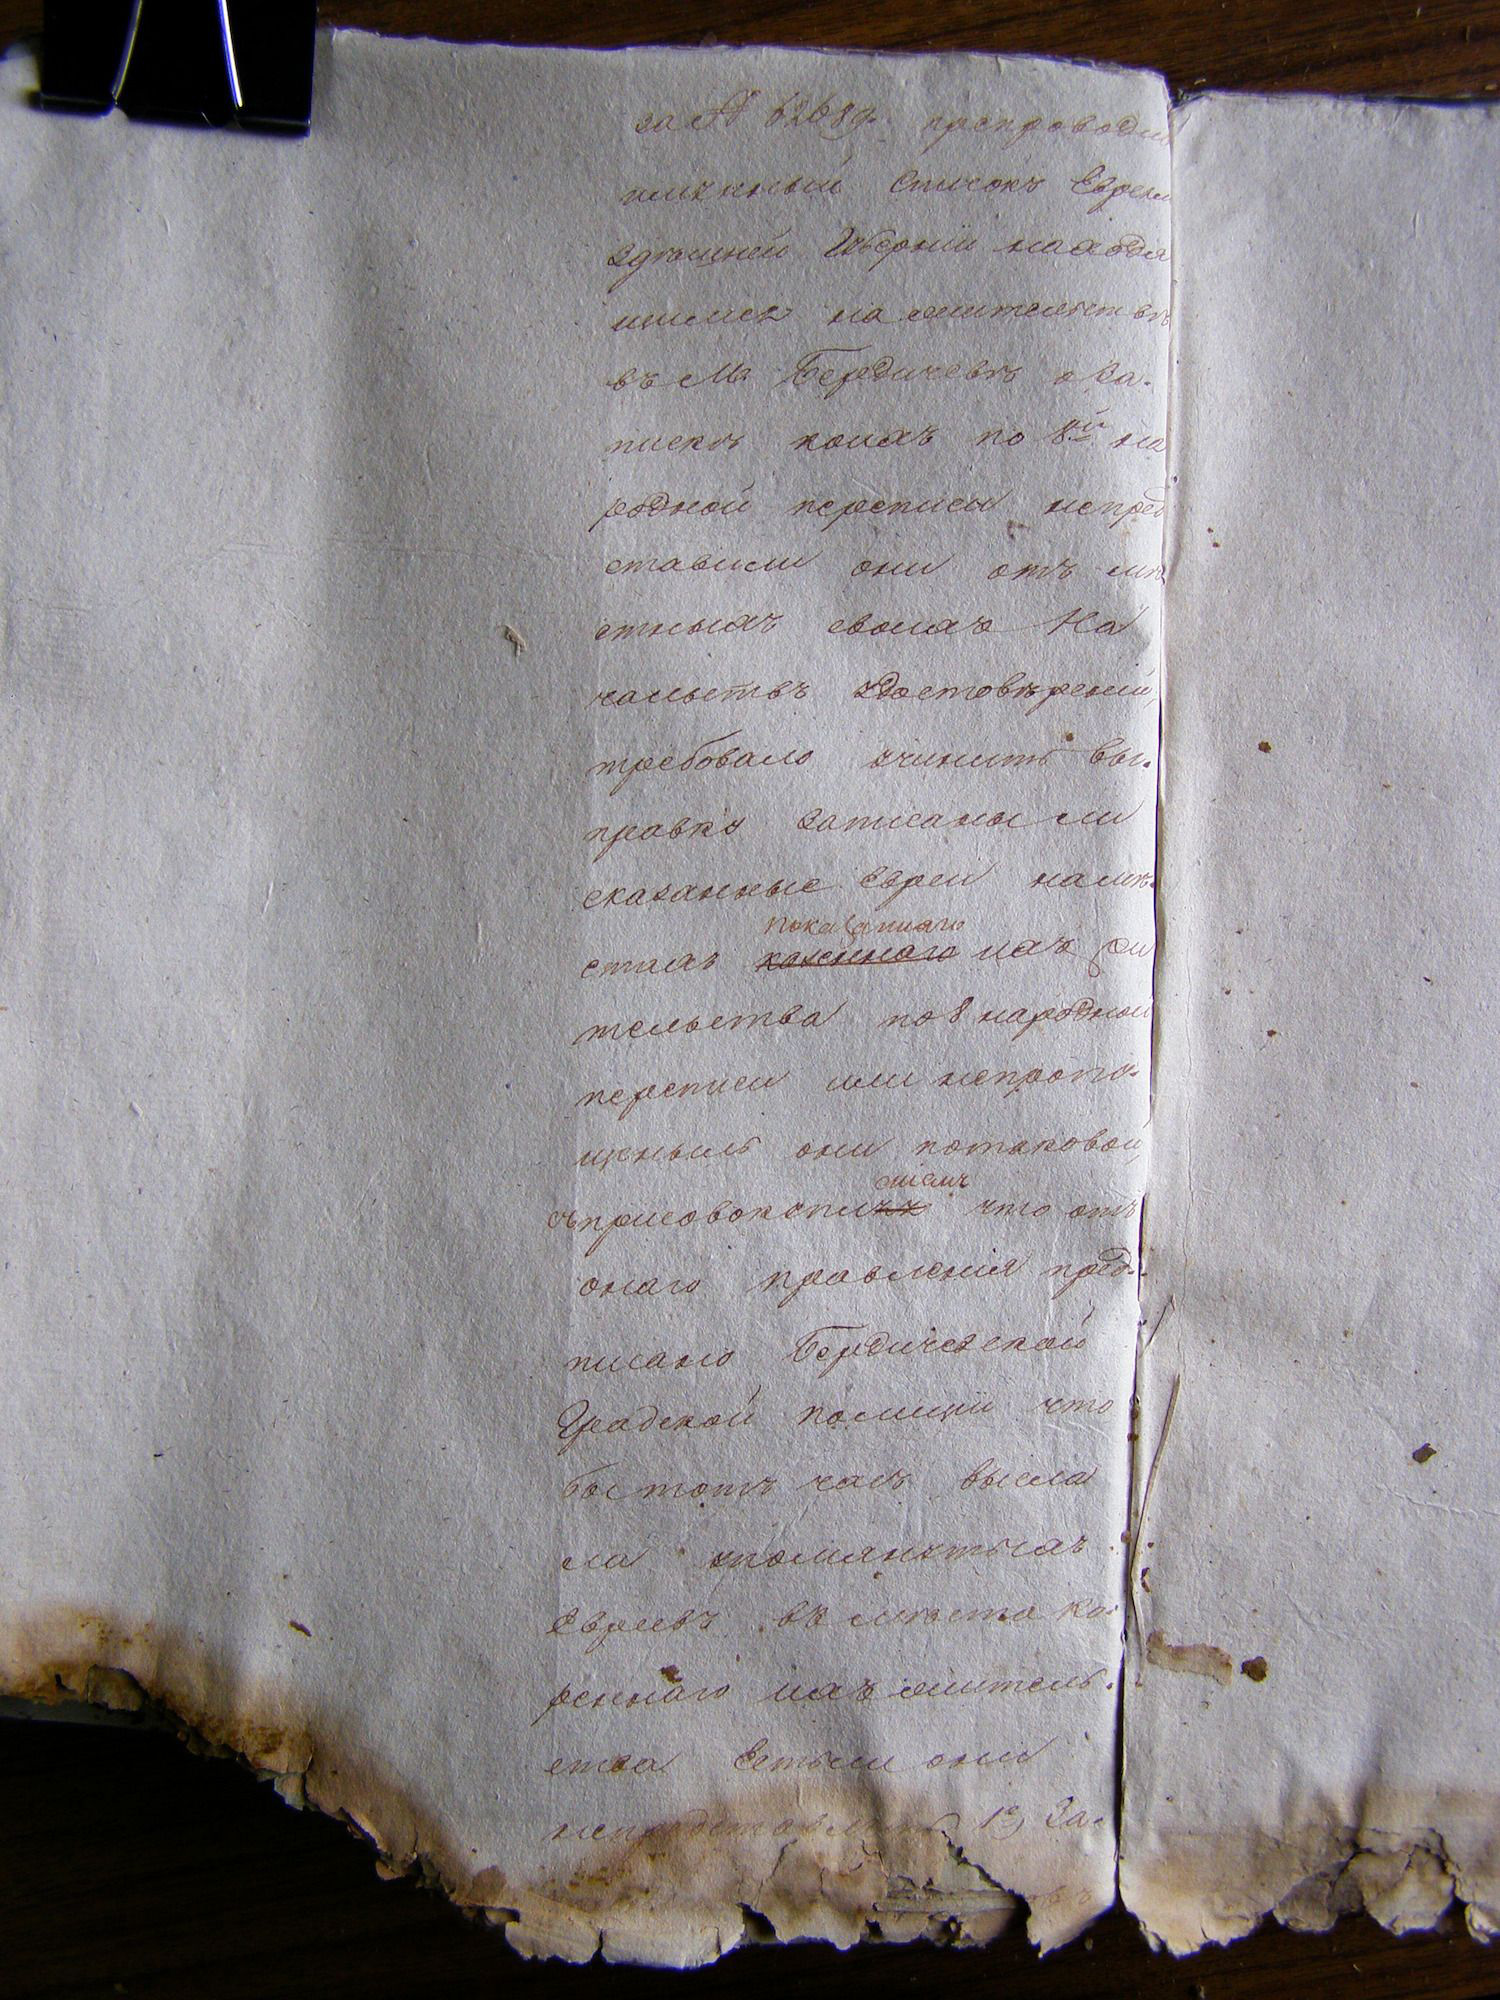 за № 62689. препроводив
имянный списокъ Евреям
здѣшней Губерніи находя
щимся на жительствѣ
въ М. Бердичевѣ о за-
пискѣ коихъ по 8й на
родной переписи непред
ставили они отъ мѣ
стныхъ своихъ На
чальствъ удостовѣреній,
требовало учинить вы-
правку записаны ли
сказанные Евреи намѣ-
стахъ показаннаго ихъ жи
тельства по 8 народной
переписи или непропу-
щеныль они потаковой,
съприсовокупленіемъ что отъ
онаго правленія пред-
писано Бердичевской
Градской полиціи что
бы тотъ часъ высла
ла упомянутыхъ
Евреевъ въ мѣста ко-
реннаго ихъ житель-
ства Естьли они
непредставили 1е, За-